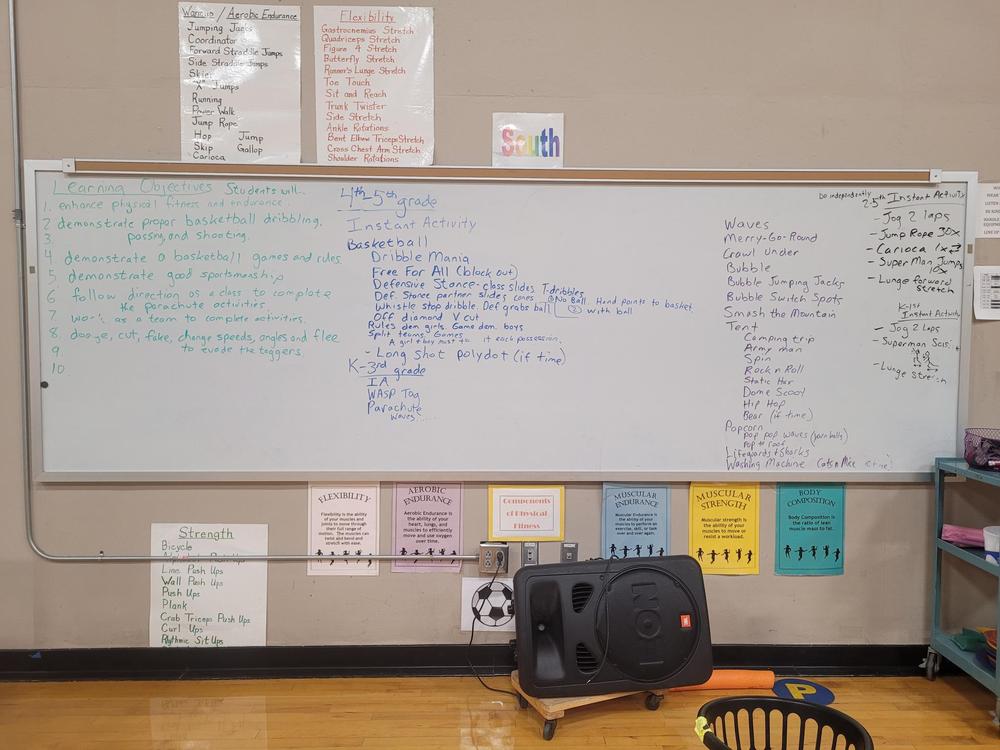 Warmup / Aerobic Endurance
Jumping Jacks
Coordinator
Forward Straddle Jumps
Side Straddle Jumps
Skier
"X" Jumps
Running
Power Walk
Jump Rope
Hop Jump
Skip Gallop
Carioca
Flexibility
Gastrocnemius Stretch
Quadriceps Stretch
Figure 4 Stretch
Butterfly Stretch
Runner's Lunge Stretch
Toe Touch
Sit and Reach
Trunk Twister
Side Stretch
Ankle Rotations
Bent Elbow Triceps Stretch
Cross Chest Arm Stretch
Shoulder Rotations
South
Learning Objectives Students will...
1. enhance physical fitness and endurance.
2. demonstrate proper basketball dribbling,
3. passing, and shooting.
4. demonstrate a basketball games and rules.
5. demonstrate good sportsmanship
6. follow direction as a class to complete
the parachute activities
7. work as a team to complete activities.
8. dodge, cut, fake, change speeds, angles and flee
9 to evade the taggers.
10
4th-5th grade
Instant Activity
Basketball
Dribble Mania
Free For All (block out)
Defensive Stance-class slides T-dribbles
Def. Stance partner slides cones ① No Ball. Hand points to basket
Whistle stop dribble. Def grabs ball ② with ball
Off diamond V cut
Rules dem girls. Game dem. boys
Split teams. Games
A girl + boy must it each possession.
- Long shot polydot (if time)
K-3rd grade
IA
WASP Tag
Parachute
Waves
Waves
Merry-Go-Round
Crawl Under
Bubble
Bubble Jumping Jacks
Bubble Switch Spots
Smash the Mountain
Tent
Camping trip
Army man
Spin
Rock n Roll
Static Hair
Dome Scoot
Hip Hop
Bear (if time)
Popcorn
pop pop waves (yarn balls)
Pop to roof
Lifeguards + Sharks
Washing Machine Cats n Mice
Do independently
2-5th Instant Activity
- Jog 2 laps
- Jump Rope 30x
- Carioca 1x3
- Super Man Jumps
10x
- Lunge forward
stretch
K-1st
Instant Activity
- Jog 2 Laps
- Superman
- Lunge Stretch
FLEXIBILITY
Flexibility is the ability
of your muscles and
joints to move through
their full range of
motion. The muscles
can twist and bend and
stretch with ease.
AEROBIC
ENDURANCE
Aerobic Endurance is
the ability of your
heart, lungs, and
muscles to efficiently
move and use oxygen
over time.
Components
of Physical
Fitness
MUSCULAR
ENDURANCE
Muscular Endurance is
the ability of your
muscles to perform an
exercise, skill, or task
over and over again.
MUSCULAR
STRENGTH
Muscular strength is
the ability of your
muscles to move or
resist a workload.
BODY
COMPOSITION
Body Composition is
the ratio of lean
muscle mass to fat.
Strength
Bicycle
Line Push Ups
Wall Push Ups
Push Ups
Plank
Crab Triceps Push Ups
Curl Ups
Rhythmic Sit Ups
EON
JBL
P